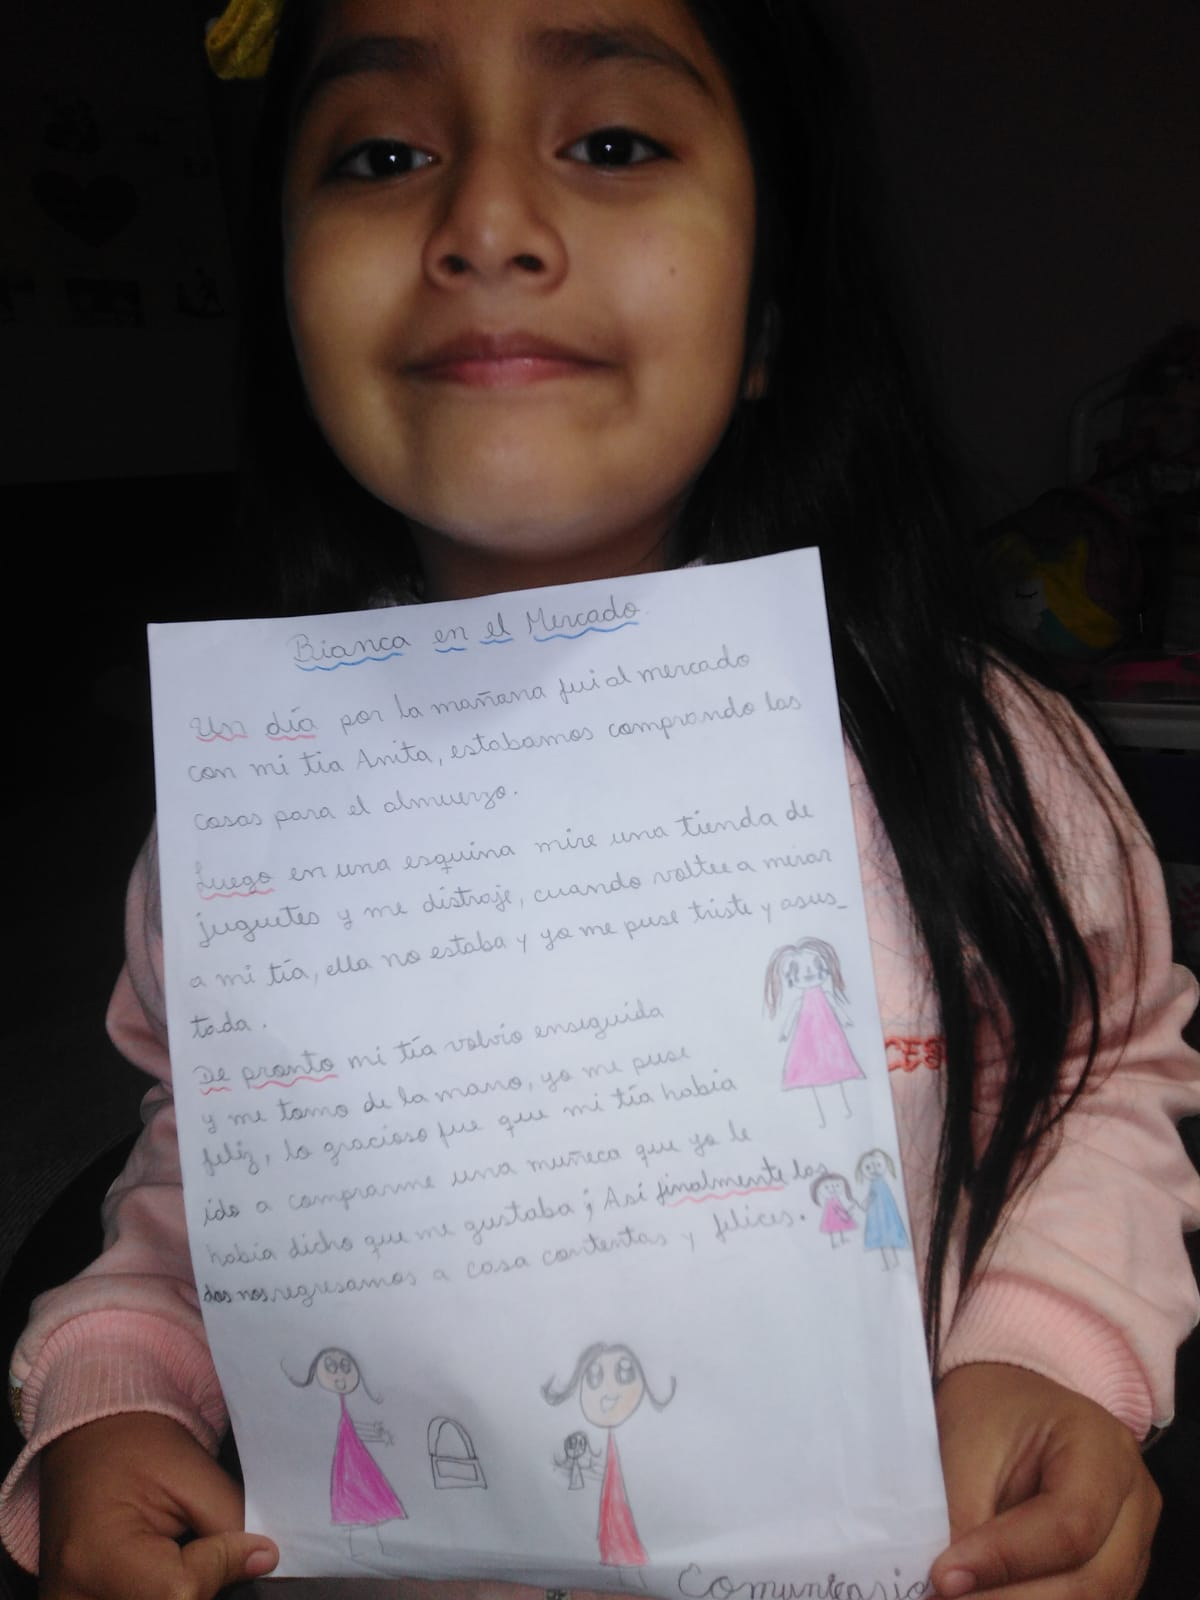 Bianca en el Mercado
Un día por la mañana fui al mercado
con mi tia Anita, estabamos comprando las
cosas para el almuerzo.
Luego en una esquina mire una tienda de
juguetes y me distraje, cuando voltee a mirar
a mi tía, ella no estaba y yo me puse triste y asus_
tada.
De pronto mi tía volvio enseguida
y me tomo de la mano, yo me puse
feliz, lo gracioso fue que mi tía había
ido a comprarme una muñeca que yo le
había dicho que me gustaba; Así finalmente las
dos nos regresamos a casa contentas y felices.